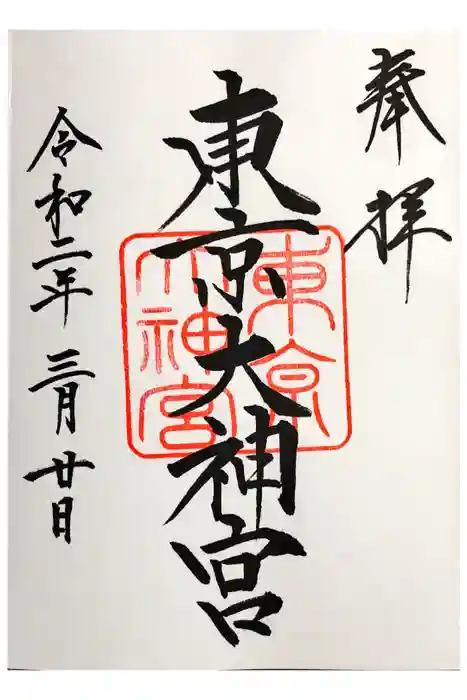 奉拝
東京大神宮
東京
大神宮
令和二年 三月廿日